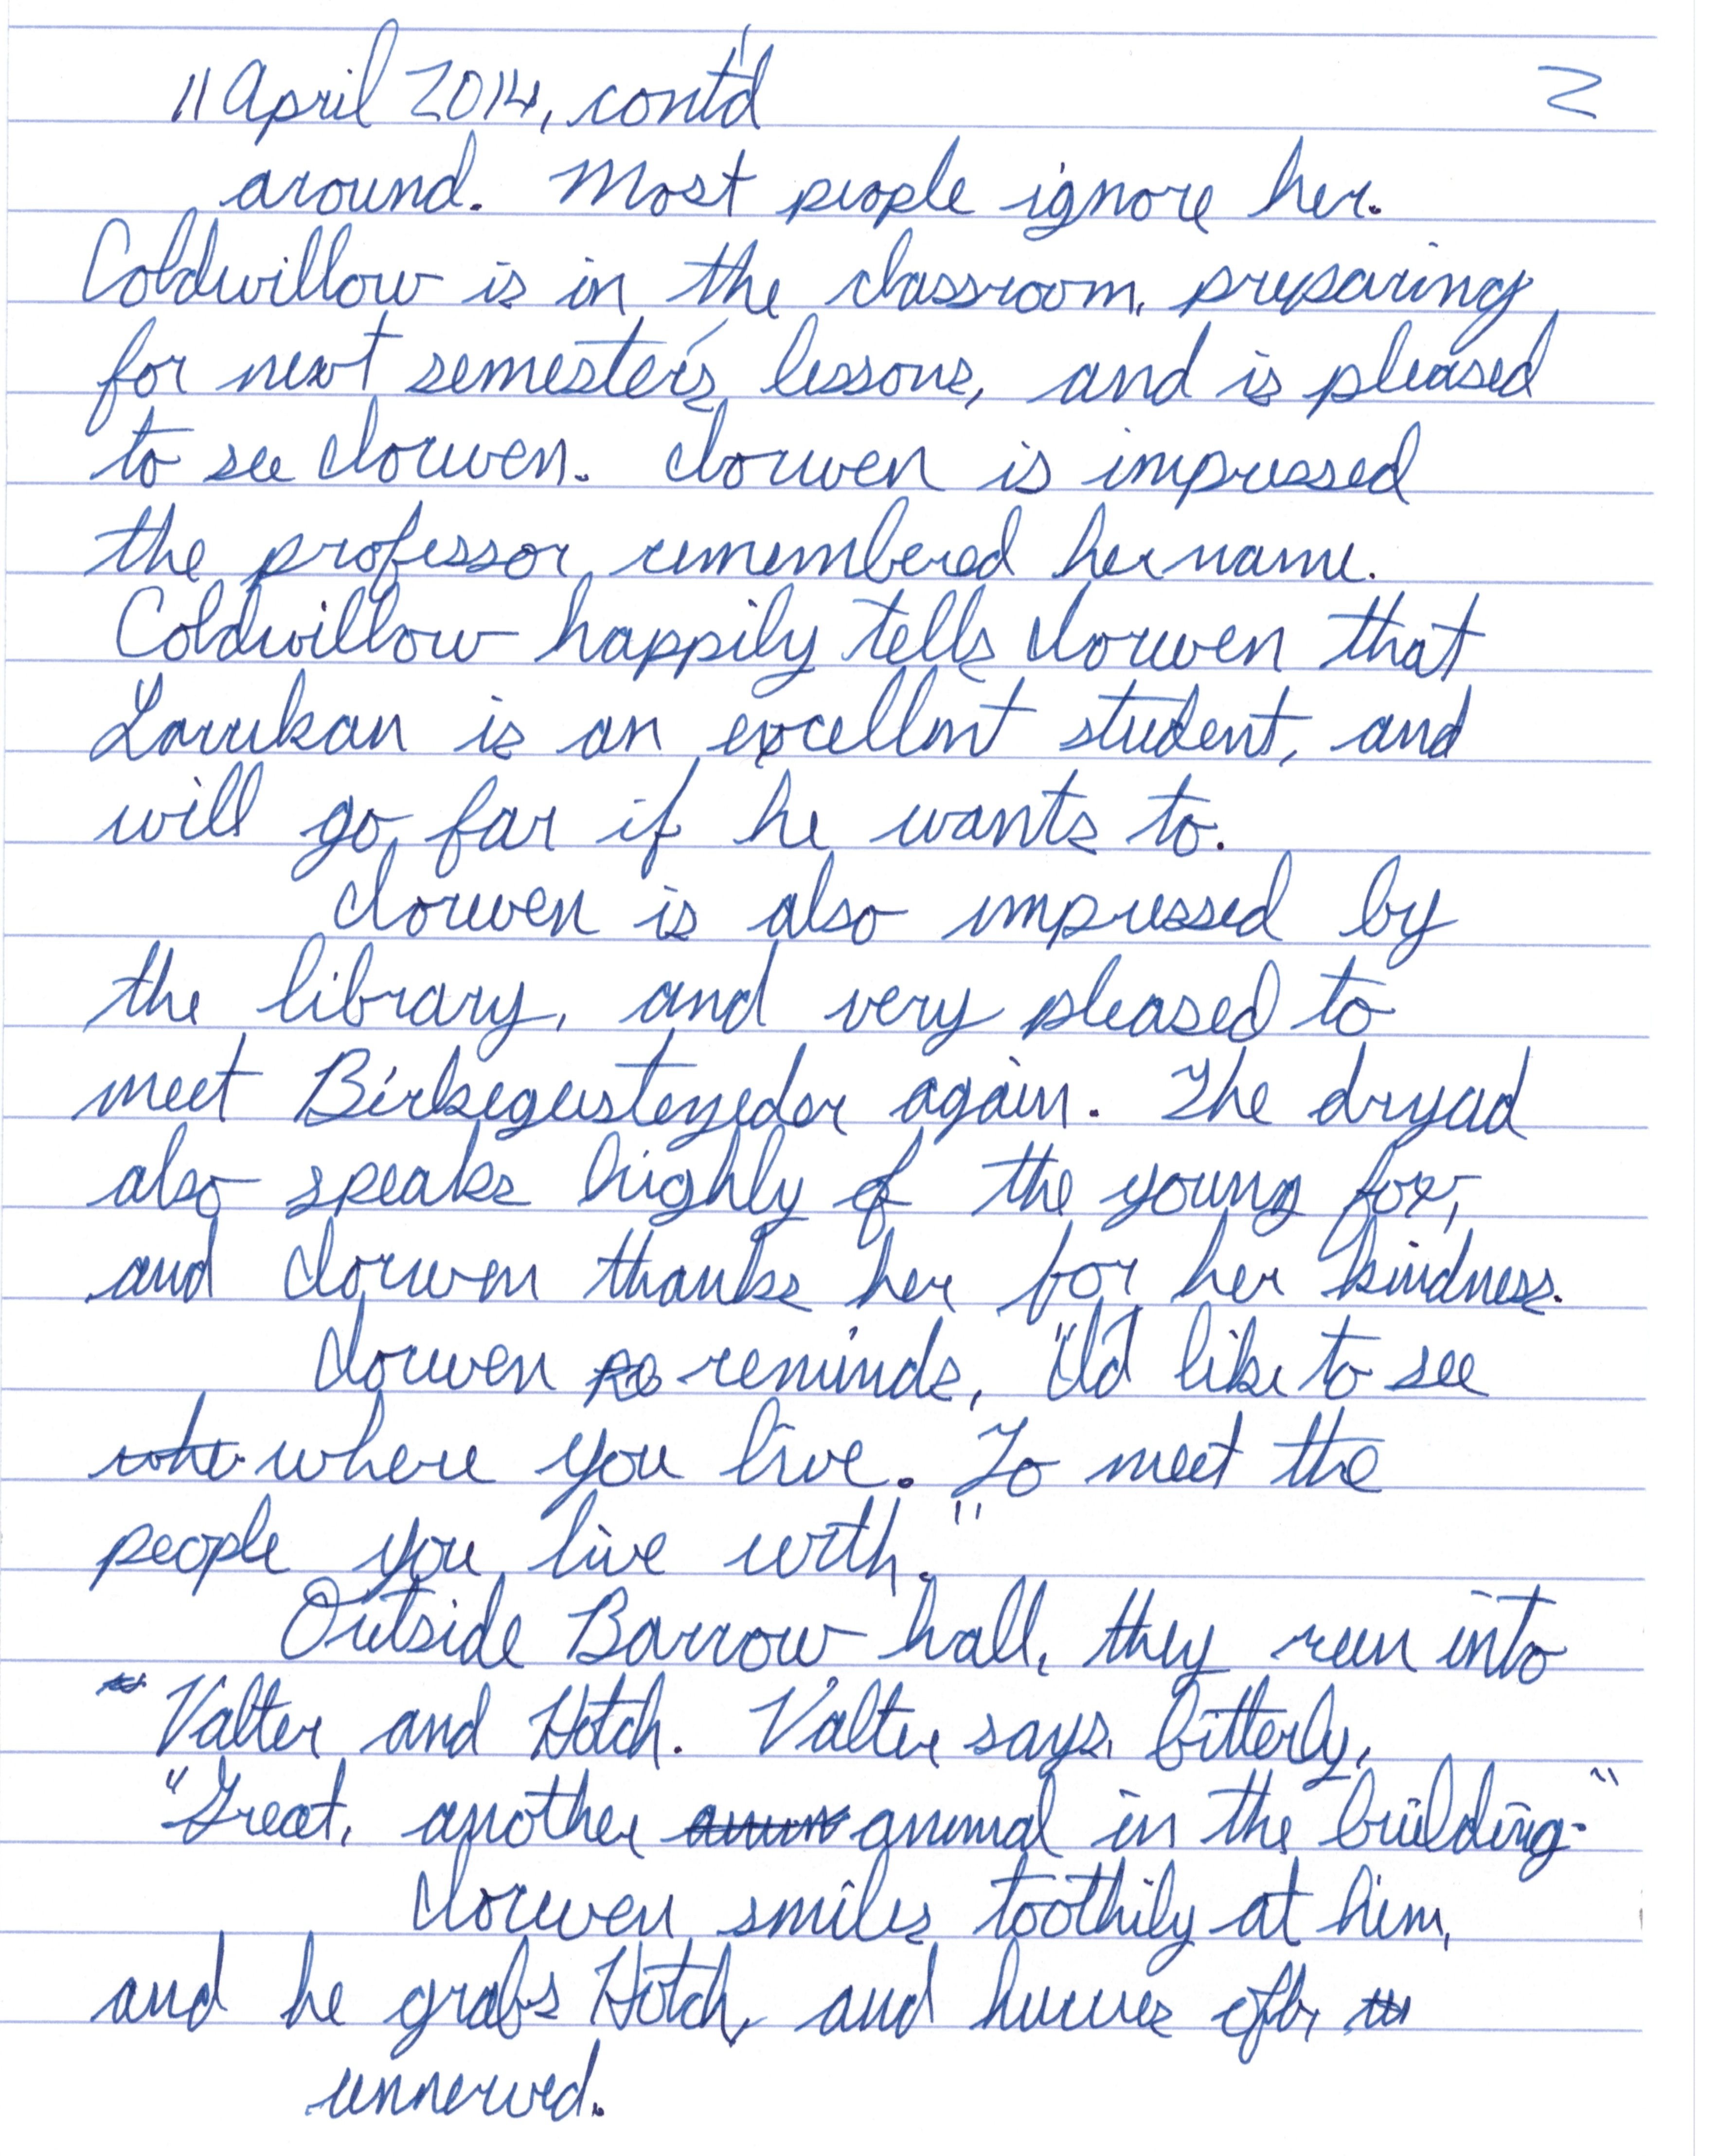 11 April 2014, cont'd 2
around. Most people ignore her.
Coldwillow is in the classroom, preparing
for next semester's lessons, and is pleased
to see Clorwen. Clorwen is impressed
the professor remembered her name.
Coldwillow happily tells Clorwen that
Larukan is an excellent student, and
will go far if he wants to.
Clorwen is also impressed by
the library, and very pleased to
meet again. The dryad
also speaks highly of the young fox,
and Clorwen thanks her for her kindness.
Clorwen reminds, "I'd like to see
where you live. To meet the
people you live with."
Outside Barrow hall, they run into
Valter and Hotch. Valter says, bitterly,
"Great, another animal in the building."
Clorwen smiles toothily at him,
and he grabs Hotch, and hurries off,
unnerved.